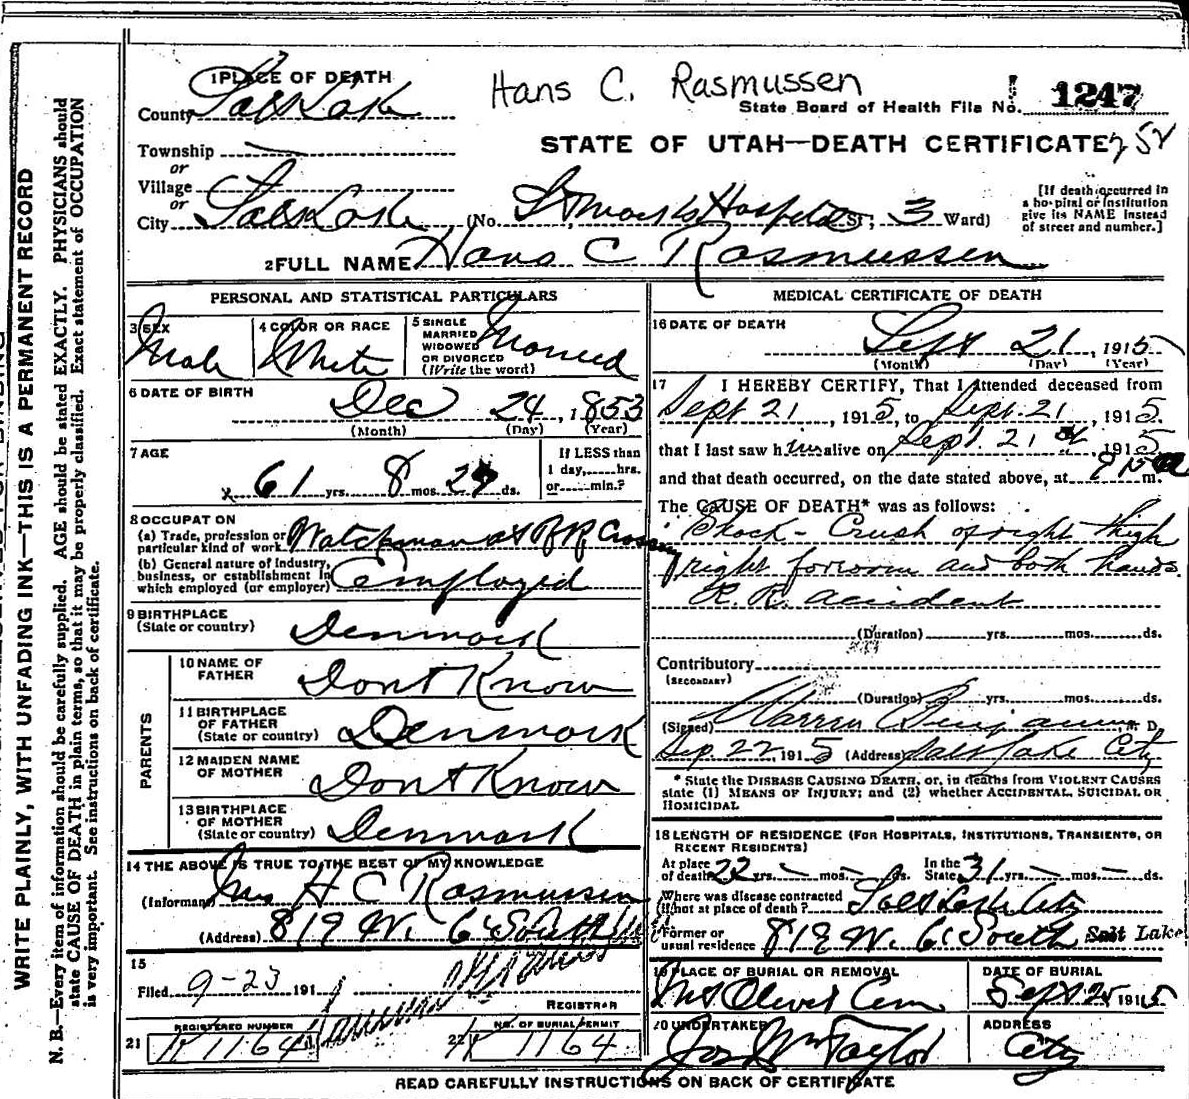 1 PLACE OF DEATH
Hans C. Rasmussen
County Salt Lake
State Board of Health File No. 1247
Township
STATE OF UTAH—DEATH CERTIFICATE 252
or
Village
or
City Salt Lake (No. St Mark's Hospital St; 3 Ward)
[If death occurred in
a hospital or institution
give its NAME instead
of street and number.]
2 FULL NAME Hans C Rasmussen
PERSONAL AND STATISTICAL PARTICULARS
3 SEX
Male
4 COLOR OR RACE
White
5 SINGLE
MARRIED
WIDOWED
OR DIVORCED
(Write the word)
Married
6 DATE OF BIRTH
Dec 24, 1853
(Month) (Day) (Year)
7 AGE
If LESS than
1 day,......hrs.
or......min.?
61 yrs. 8 mos. 27 ds.
8 OCCUPATION
(a) Trade, profession or
particular kind of work Watchman at RR Crossing
(b) General nature of Industry,
business, or establishment in
which employed (or employer) Employed
9 BIRTHPLACE
(State or country) Denmark
PARENTS
10 NAME OF
FATHER Dont Know
11 BIRTHPLACE
OF FATHER
(State or country) Denmark
12 MAIDEN NAME
OF MOTHER Dont Know
13 BIRTHPLACE
OF MOTHER
(State or country) Denmark
14 THE ABOVE IS TRUE TO THE BEST OF MY KNOWLEDGE
(Informant) Mrs H C Rasmussen
(Address) 819 W. 6 South
15
Filed 9-23 191
REGISTRAR
21 REGISTERED NUMBER
K 1164
22 NO. OF BURIAL PERMIT
K 1164
MEDICAL CERTIFICATE OF DEATH
16 DATE OF DEATH
Sept 21, 1915
(Month) (Day) (Year)
17 I HEREBY CERTIFY, That I attended deceased from
Sept 21, 1915, to Sept. 21, 1915.
that I last saw him alive on Sept. 21 1915
and that death occurred, on the date stated above, at 9 15 a m.
The CAUSE OF DEATH* was as follows:
Shock - Crush of right thigh
right forearm and both hands.
R. R. accident
(Duration) yrs. mos. ds.
Contributory
(SECONDARY)
(Duration) yrs. mos. ds.
(Signed) Warren Benjamin, M. D.
Sep. 22, 1915 (Address) Salt Lake City
* State the DISEASE CAUSING DEATH, or, in deaths from VIOLENT CAUSES
state (1) MEANS OF INJURY; and (2) whether ACCIDENTAL, SUICIDAL OR
HOMICIDAL
18 LENGTH OF RESIDENCE (FOR HOSPITALS, INSTITUTIONS, TRANSIENTS, OR
RECENT RESIDENTS)
At place
of death 22 yrs. — mos. — ds. In the
State 31 yrs. — mos. — ds.
Where was disease contracted
if not at place of death? Salt Lake City
Former or
usual residence 819 W. 6 South Salt Lake
19 PLACE OF BURIAL OR REMOVAL
Mt Olivet Cem
DATE OF BURIAL
Sept 25 1915
20 UNDERTAKER
Jos Wm Taylor
ADDRESS
City
READ CAREFULLY INSTRUCTIONS ON BACK OF CERTIFICATE
WRITE PLAINLY, WITH UNFADING INK—THIS IS A PERMANENT RECORD
N. B.—Every item of information should be carefully supplied. AGE should be stated EXACTLY. PHYSICIANS should
state CAUSE OF DEATH in plain terms, so that it may be properly classified. Exact statement of OCCUPATION
is very important. See instructions on back of certificate.